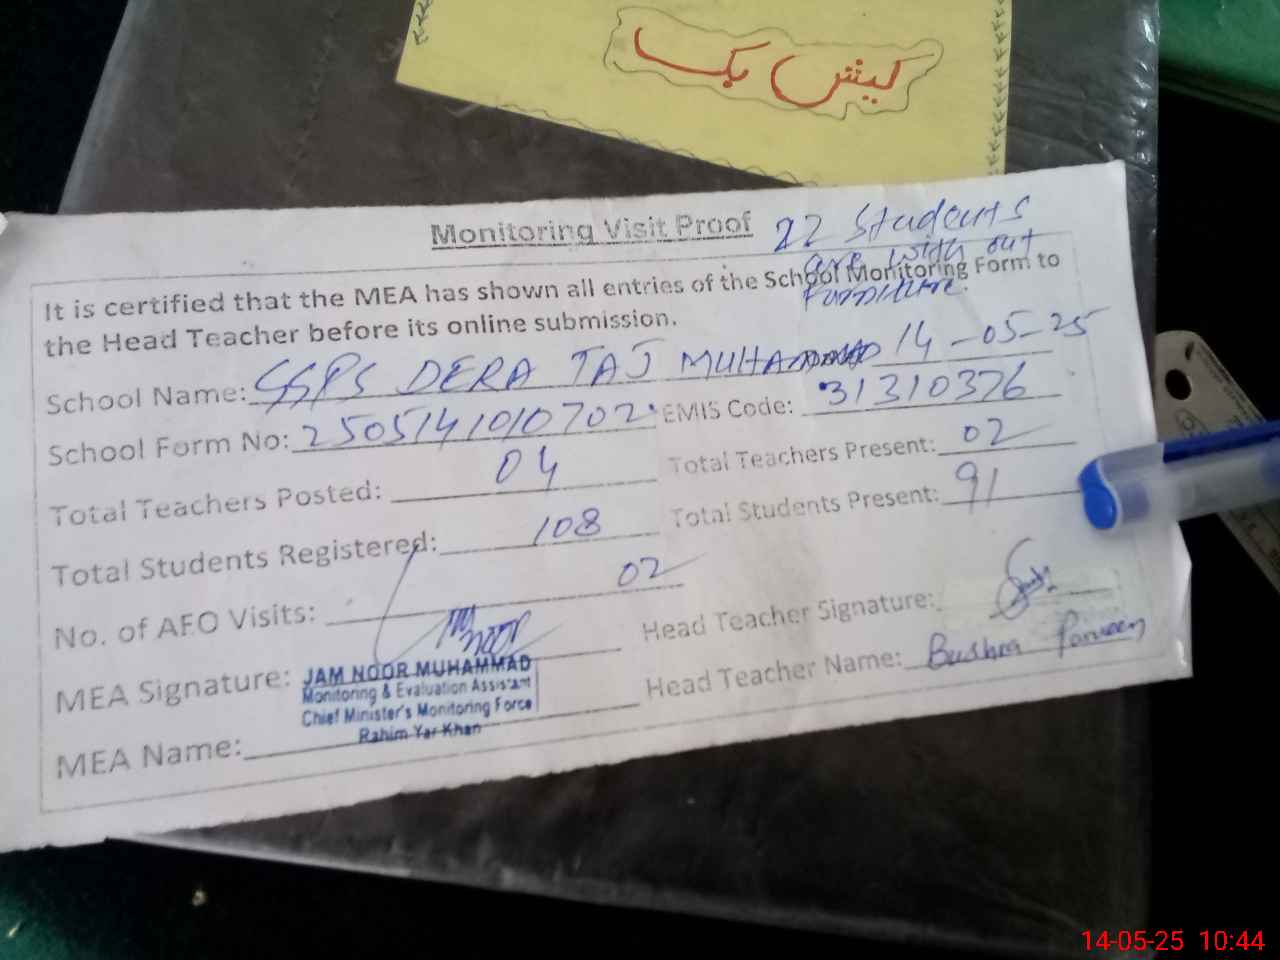 کیش بک
Monitoring Visit Proof
22 Students
are with out
Furniture.
It is certified that the MEA has shown all entries of the School Monitoring Form to
the Head Teacher before its online submission.
School Name: GGPS DERA TAJ MUHAMMAD 14-05-25
School Form No: 2505141010702 EMIS Code: 31310376
Total Teachers Posted: 04 Total Teachers Present: 02
Total Students Registered: 108 Total Students Present: 91
No. of AEO Visits: 02
MEA Signature: Noor Head Teacher Signature:
JAM NOOR MUHAMMAD
Monitoring & Evaluation Assistant
Chief Minister's Monitoring Force
Rahim Yar Khan
Head Teacher Name: Bushra Parveen
MEA Name:
14-05-25 10:44